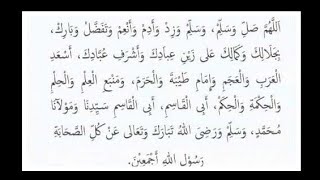 اَللّٰهُمَّ صَلِّ وَسَلِّمْ، وَسَلِّمْ وَزِدْ وَأَدِمْ وَأَنْعِمْ وَتَفَضَّلْ وَبَارِكْ،
بِجَلَالِكَ وَكَمَالِكَ عَلَى زَيْنِ عِبَادِكَ وَأَشْرَفِ عُبَّادِكَ، أَسْعَدِ
الْعَرَبِ وَالْعَجَمِ وَإِمَامِ طَيْبَةَ وَالْحَرَمِ، وَمَنْبَعِ الْعِلْمِ وَالْحِلْمِ
وَالْحِكْمَةِ وَالْحِكَمِ، أَبِى الْقَاسِمِ، أَبِى الْقَاسِمِ سَيِّدِنَا وَمَوْلَانَا
مُحَمَّدٍ، وَسَلِّمْ وَرَضِىَ اللّٰهُ تَبَارَكَ وَتَعَالَى عَنْ كُلِّ الصَّحَابَةِ
رَسُوْلِ اللّٰهِ أَجْمَعِيْنَ.